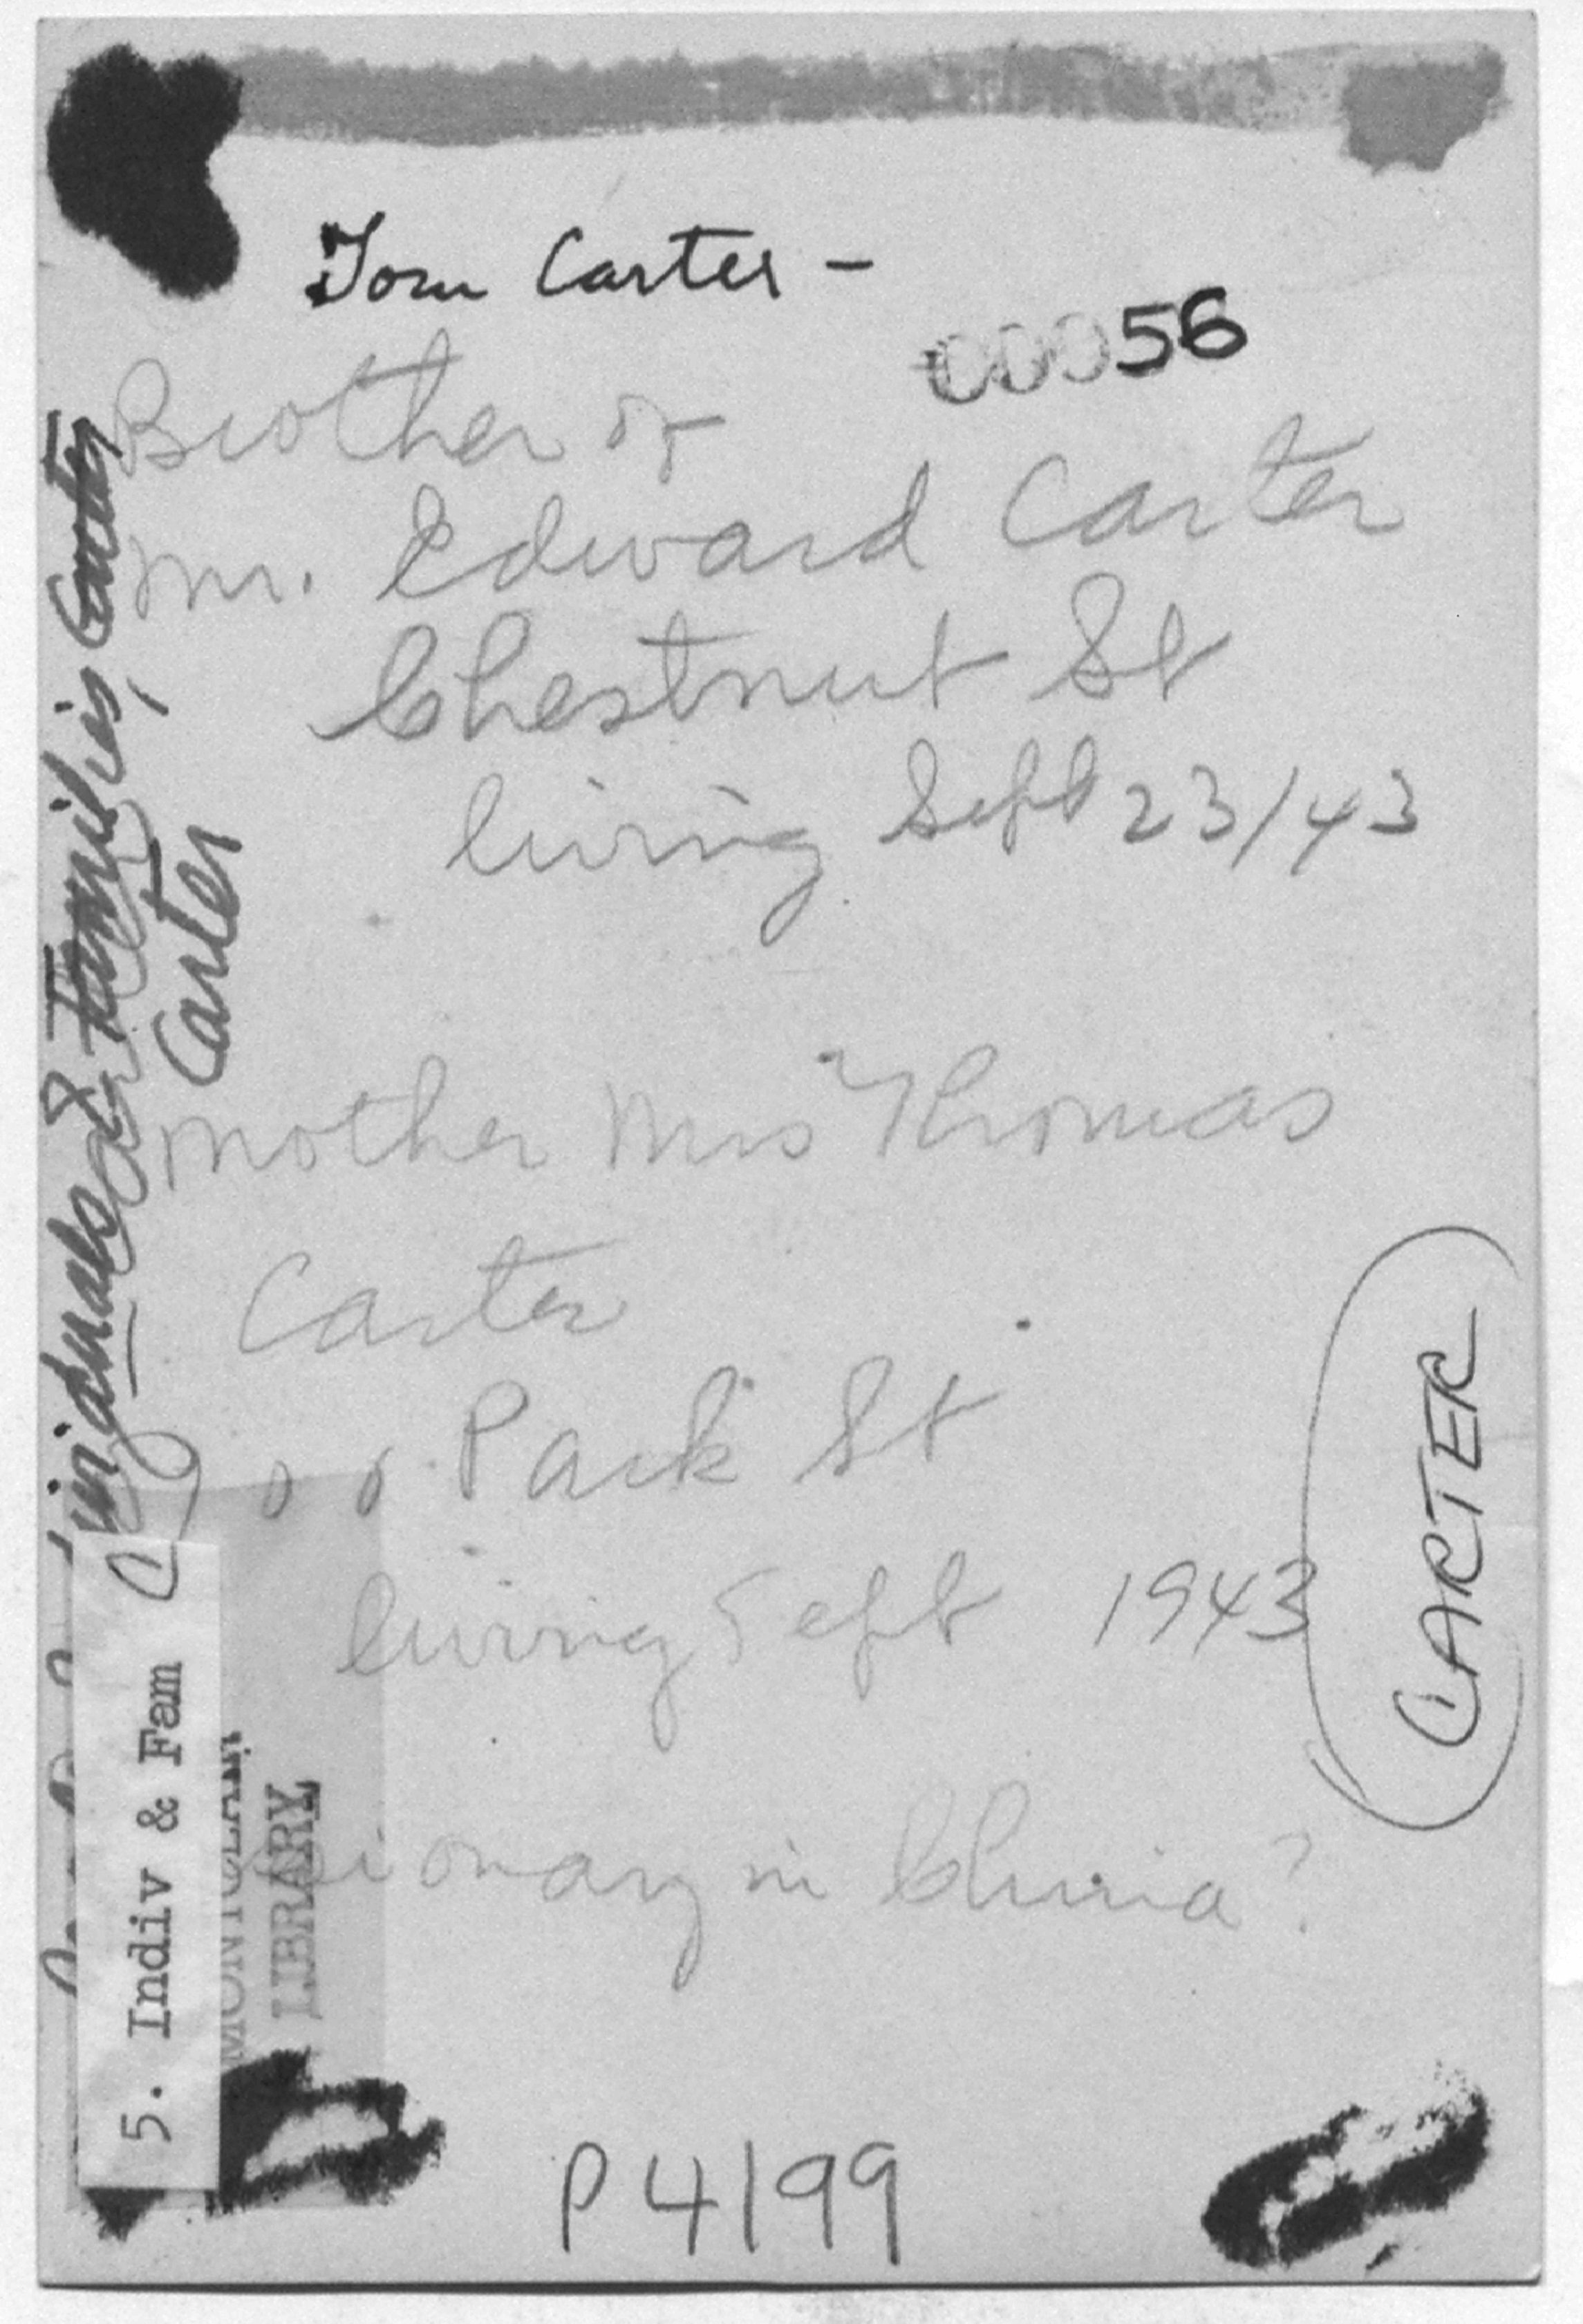 Tom Carter -
00056
Brother of
Mr. Edward Carter
Chestnut St
living Sept 23/43
Mother Mrs Thomas
Carter
Park St
living Sept 1943
ionary in China?
P4199
CARTER
Individuals & Families,
Carter
5. Indiv & Fam
MONTCLAIR
LIBRARY